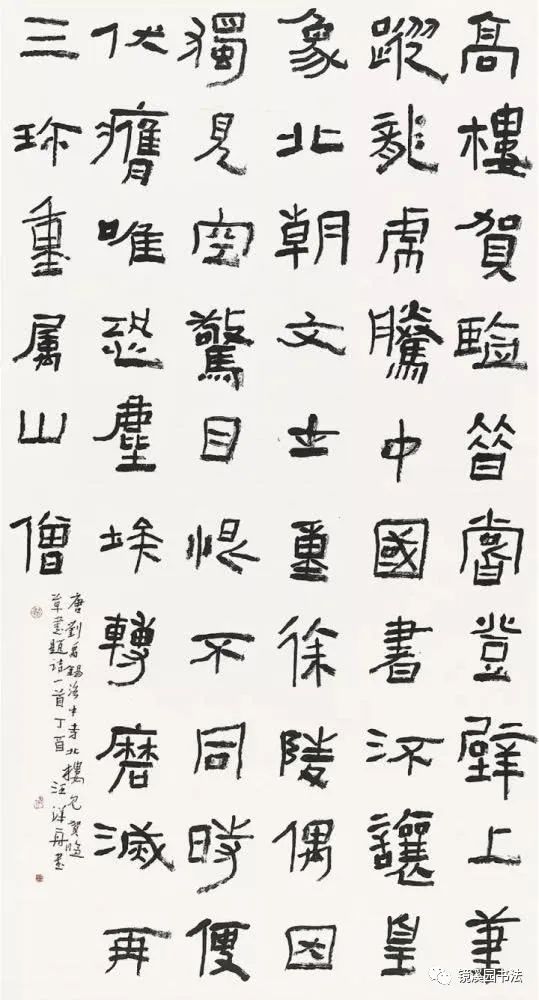 高樓賀監昔曾登壁上筆
蹤龍虎騰中國書流讓皇
象北朝文士重徐陵偶因
獨見空驚目恨不同時便
伏膺唯恐塵埃轉磨滅再
三珍重屬山僧
唐劉禹錫洛中寺北樓見賀監
草書題詩一首丁酉 汪 書
镜溪园书法